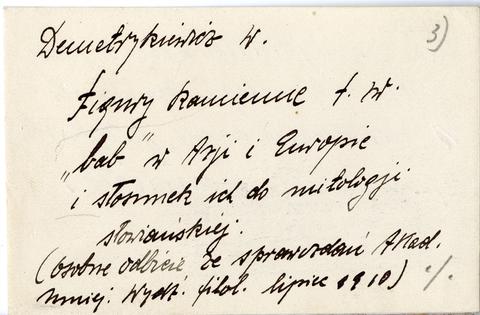 Demetrykiewicz W.
3)
Figury kamienne t. w.
„bab” w Azji i Europie
i stosunek ich do mitologji
słowiańskiej.
(osobne odbicie ze sprawozdań Akad.
Umiej. Wydz. filol. lipiec 1910) ·/.